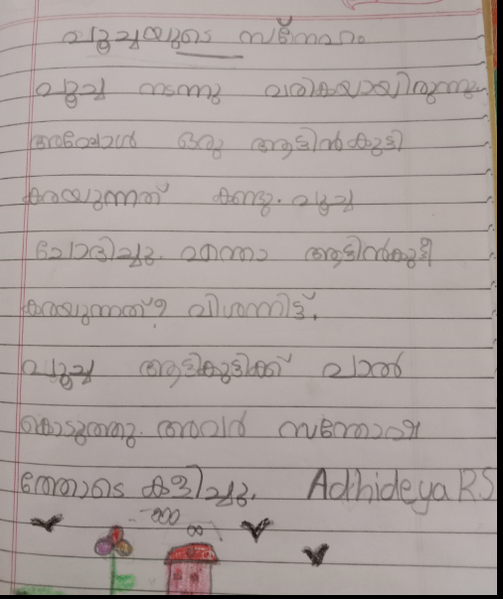 പൂച്ചയുടെ സ്നേഹം
പൂച്ച നടന്നു വരികയായിരുന്നു
അപ്പോൾ ഒരു ആട്ടിൻകുട്ടി
കരയുന്നത് കണ്ടു. പൂച്ച
ചോദിച്ചു. എന്താ ആട്ടിൻകുട്ടീ
കരയുന്നത്? വിശന്നിട്ട്.
പൂച്ച ആട്ടികുട്ടിക്ക് പാൽ
കൊടുത്തു. അവർ സന്തോഷ
ത്തോടെ കളിച്ചു. Adhideya R S